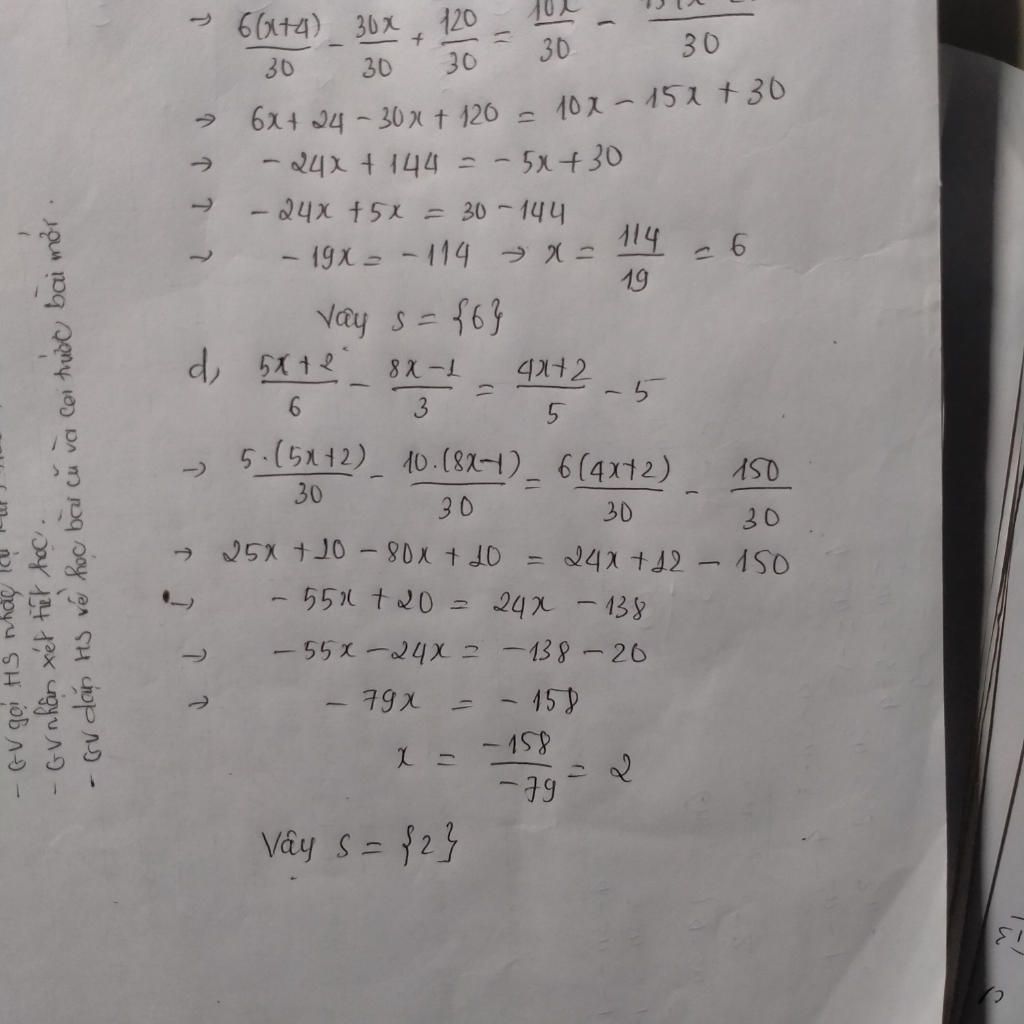 → 6(x+4)/30 - 30x/30 + 120/30 = 10x/30 - /30
→ 6x + 24 - 30x + 120 = 10x - 15x + 30
→ - 24x + 144 = - 5x + 30
→ - 24x + 5x = 30 - 144
→ - 19x = - 114 → x = 114/19 = 6
Vậy S = {6}
d, 5x+2/6 - 8x-1/3 = 4x+2/5 - 5
→ 5.(5x+2)/30 - 10.(8x-1)/30 = 6(4x+2)/30 - 150/30
→ 25x + 10 - 80x + 10 = 24x + 12 - 150
→ - 55x + 20 = 24x - 138
→ - 55x - 24x = - 138 - 20
→ - 79x = - 158
x = -158/-79 = 2
Vậy S = {2}
- GV gọi HS nhắc lại
- GV nhận xét tiết học.
- GV dặn HS về học bài cũ và coi trước bài mới.